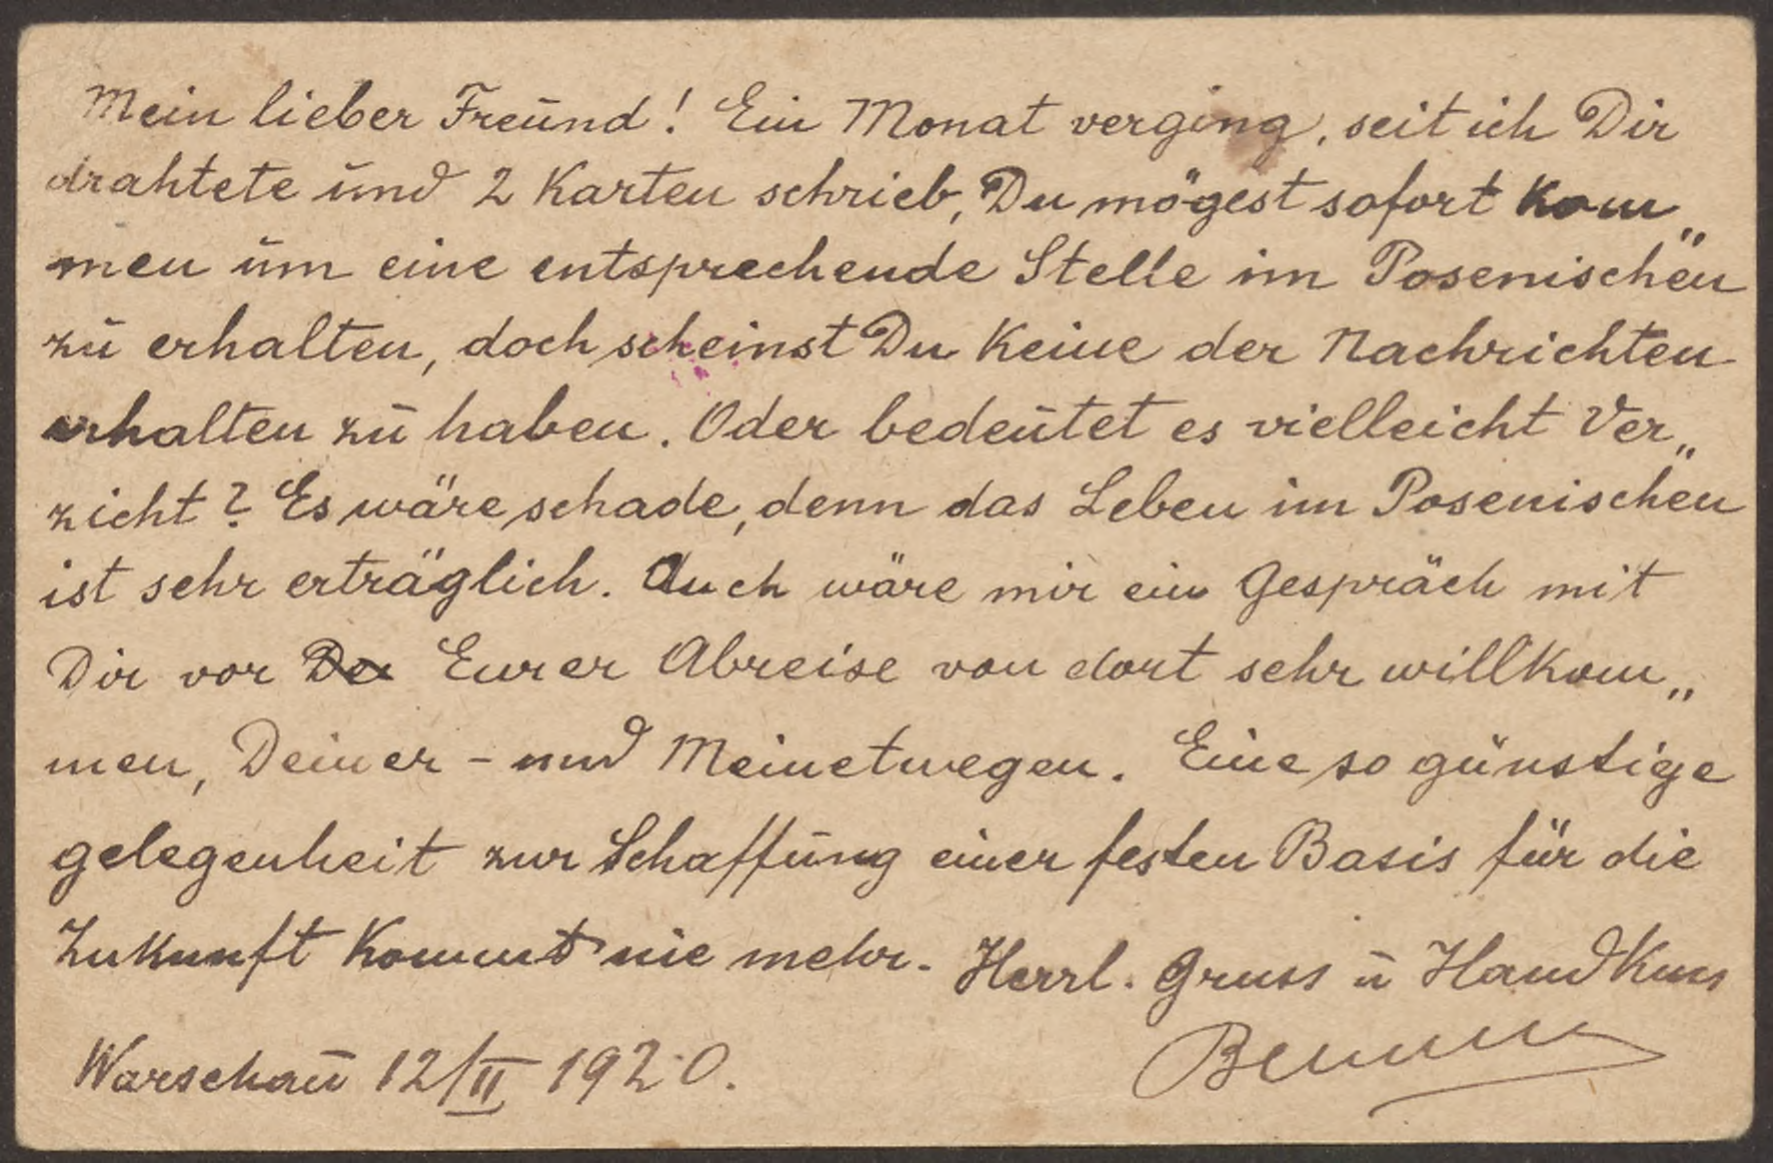 Mein lieber Freund! Ein Monat verging, seit ich Dir
drahtete und 2 Karten schrieb, Du mögest sofort kom„
men um eine entsprechende Stelle im Posenischen
zu erhalten, doch scheinst Du keine der Nachrichten
erhalten zu haben. Oder bedeutet es vielleicht Ver„
zicht? Es wäre schade, denn das Leben im Posenischen
ist sehr erträglich. Auch wäre mir ein Gespräch mit
Dir vor Eurer Abreise von dort sehr willkom„
men, Deiner - und Meinetwegen. Eine so günstige
gelegenheit zur Schaffung einer festen Basis für die
Zukunft kommt nie mehr. Herrl. Gruss u Handkuss
Warschau 12/II 1920.